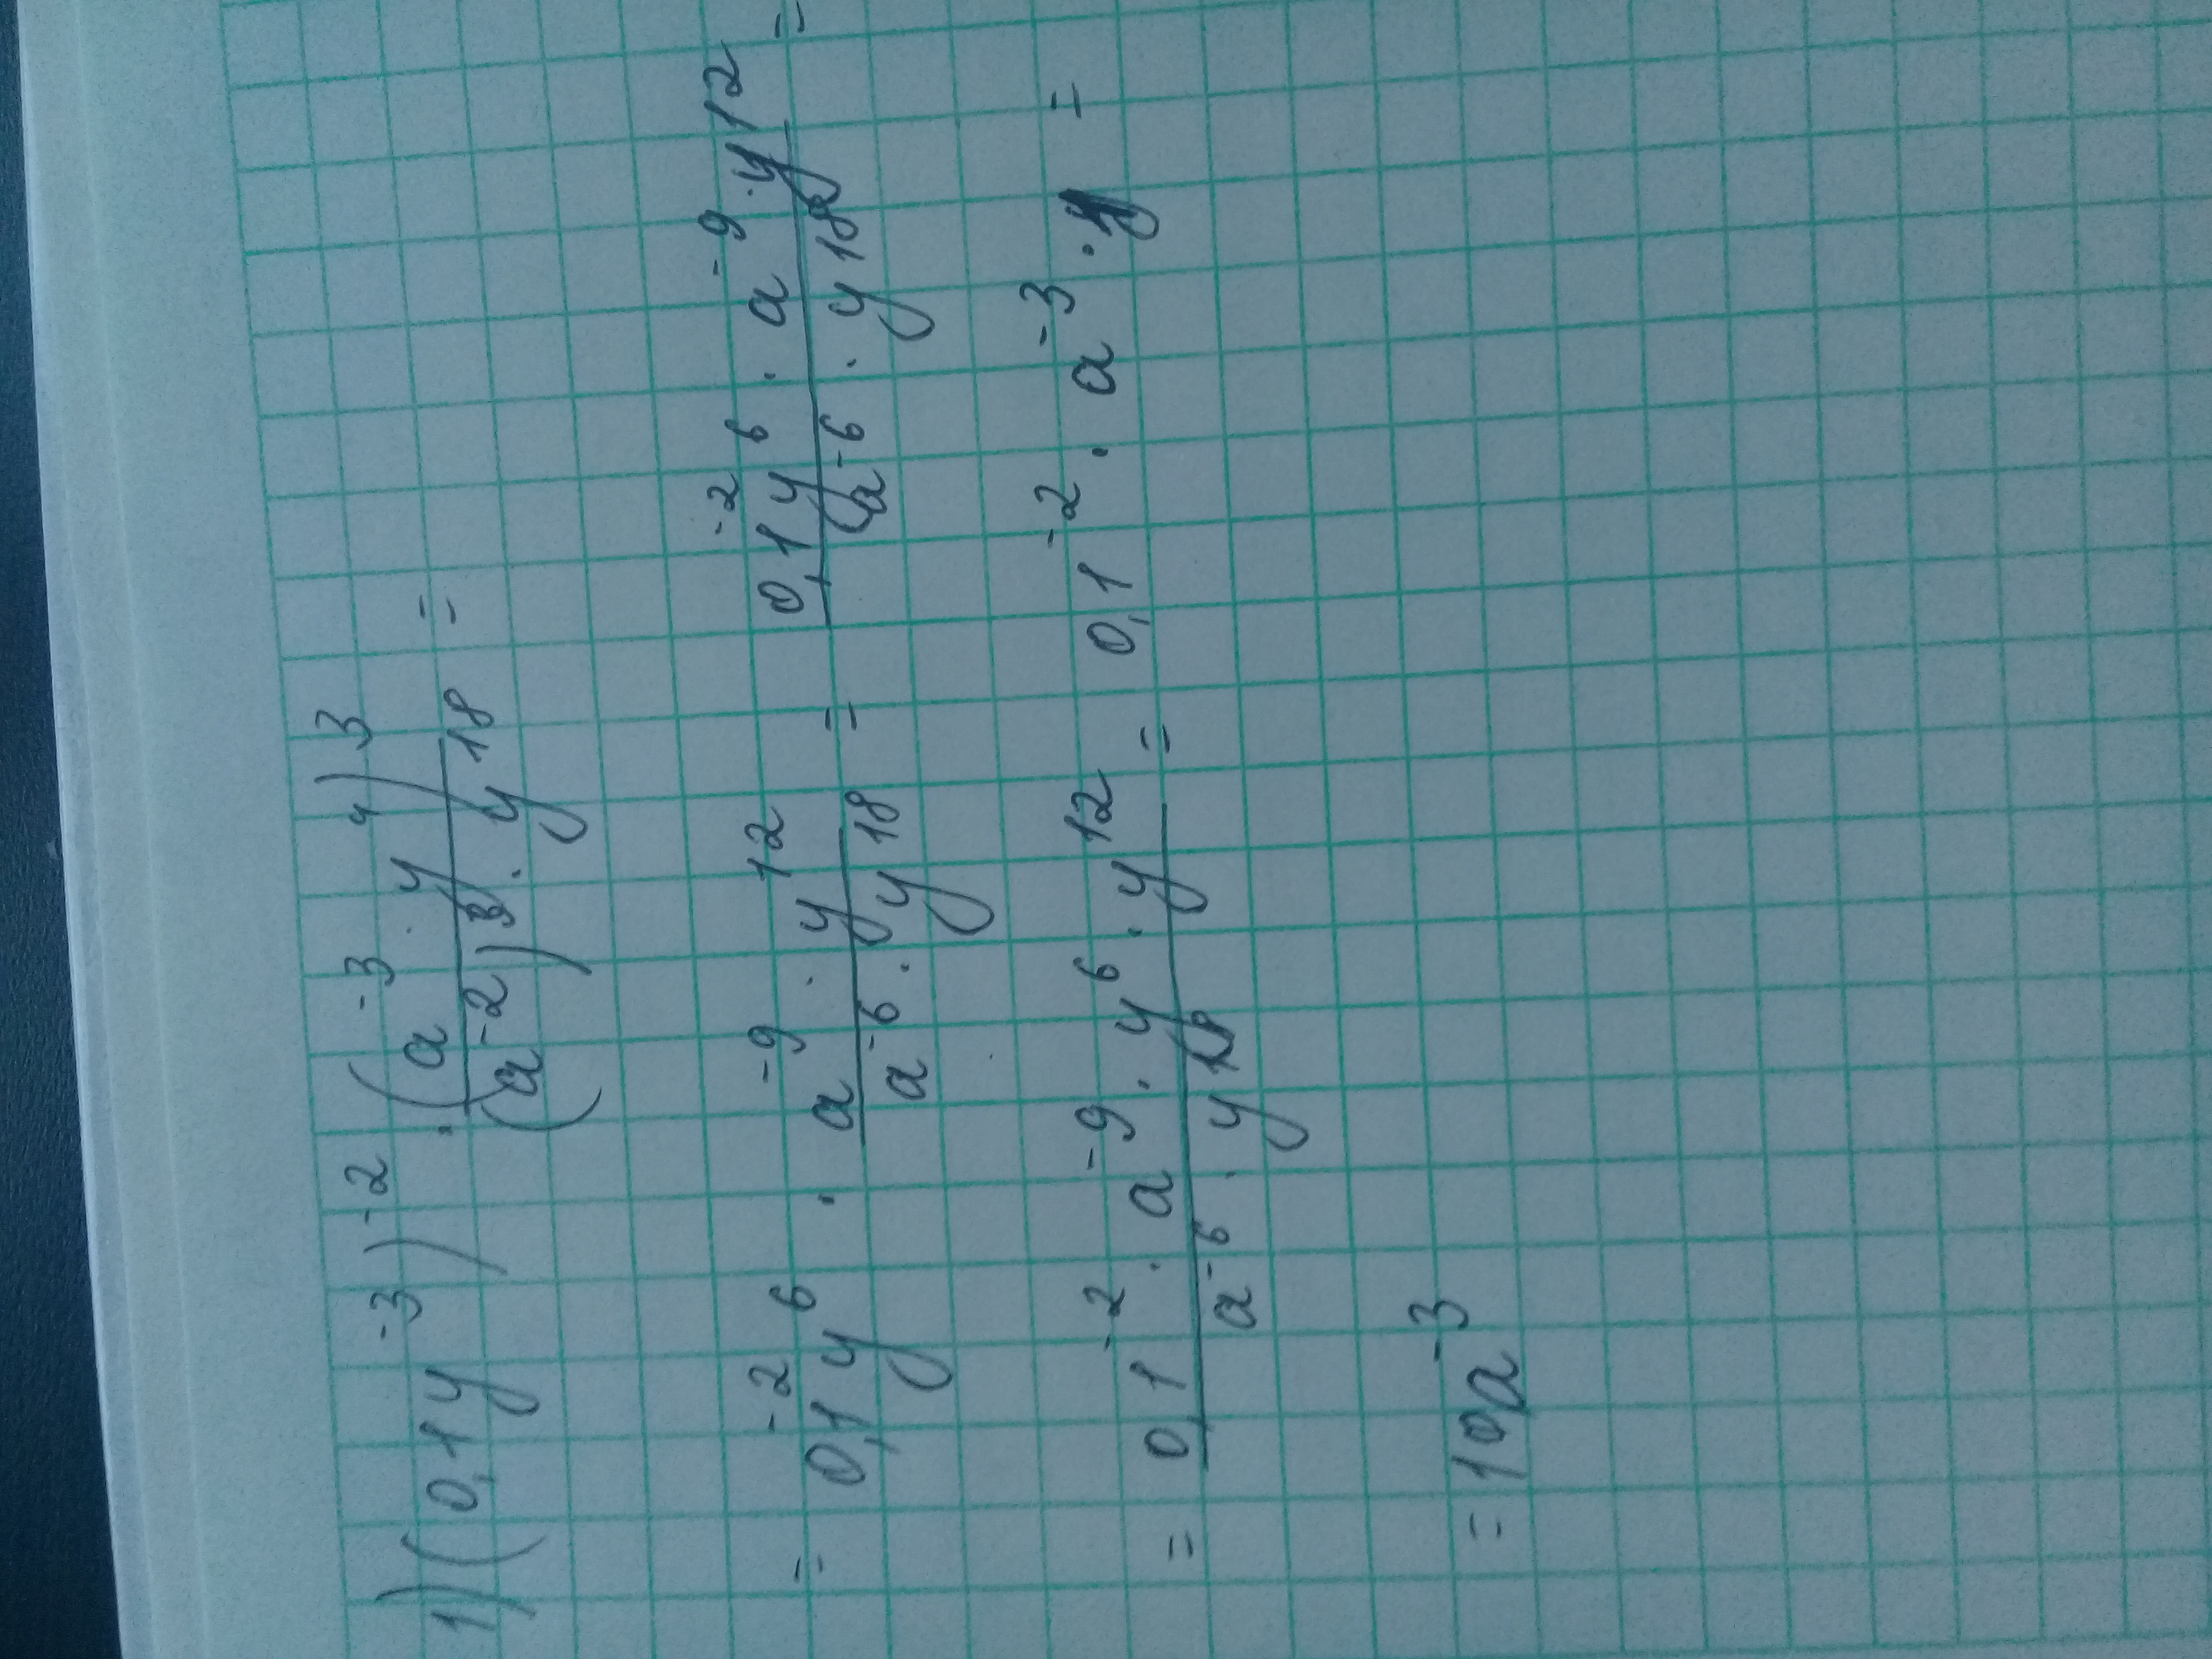 1) (0,1y⁻³)⁻² · (a⁻³ · y⁴)³ / (a⁻²)³ · y¹⁸ =
= 0,1⁻² y⁶ · a⁻⁹ · y¹² / a⁻⁶ · y¹⁸ = 0,1⁻² y⁶ · a⁻⁹ · y¹² / a⁻⁶ · y¹⁸ =
= 0,1⁻² · a⁻⁹ · y⁶ · y¹² / a⁻⁶ · y¹⁸ = 0,1⁻² · a⁻³ · =
= 10a⁻³